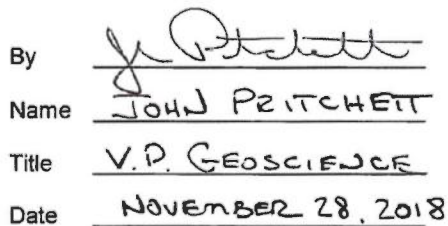 By John Pritchett
Name JOHN PRITCHETT
Title V.P. GEOSCIENCE
Date NOVEMBER 28, 2018